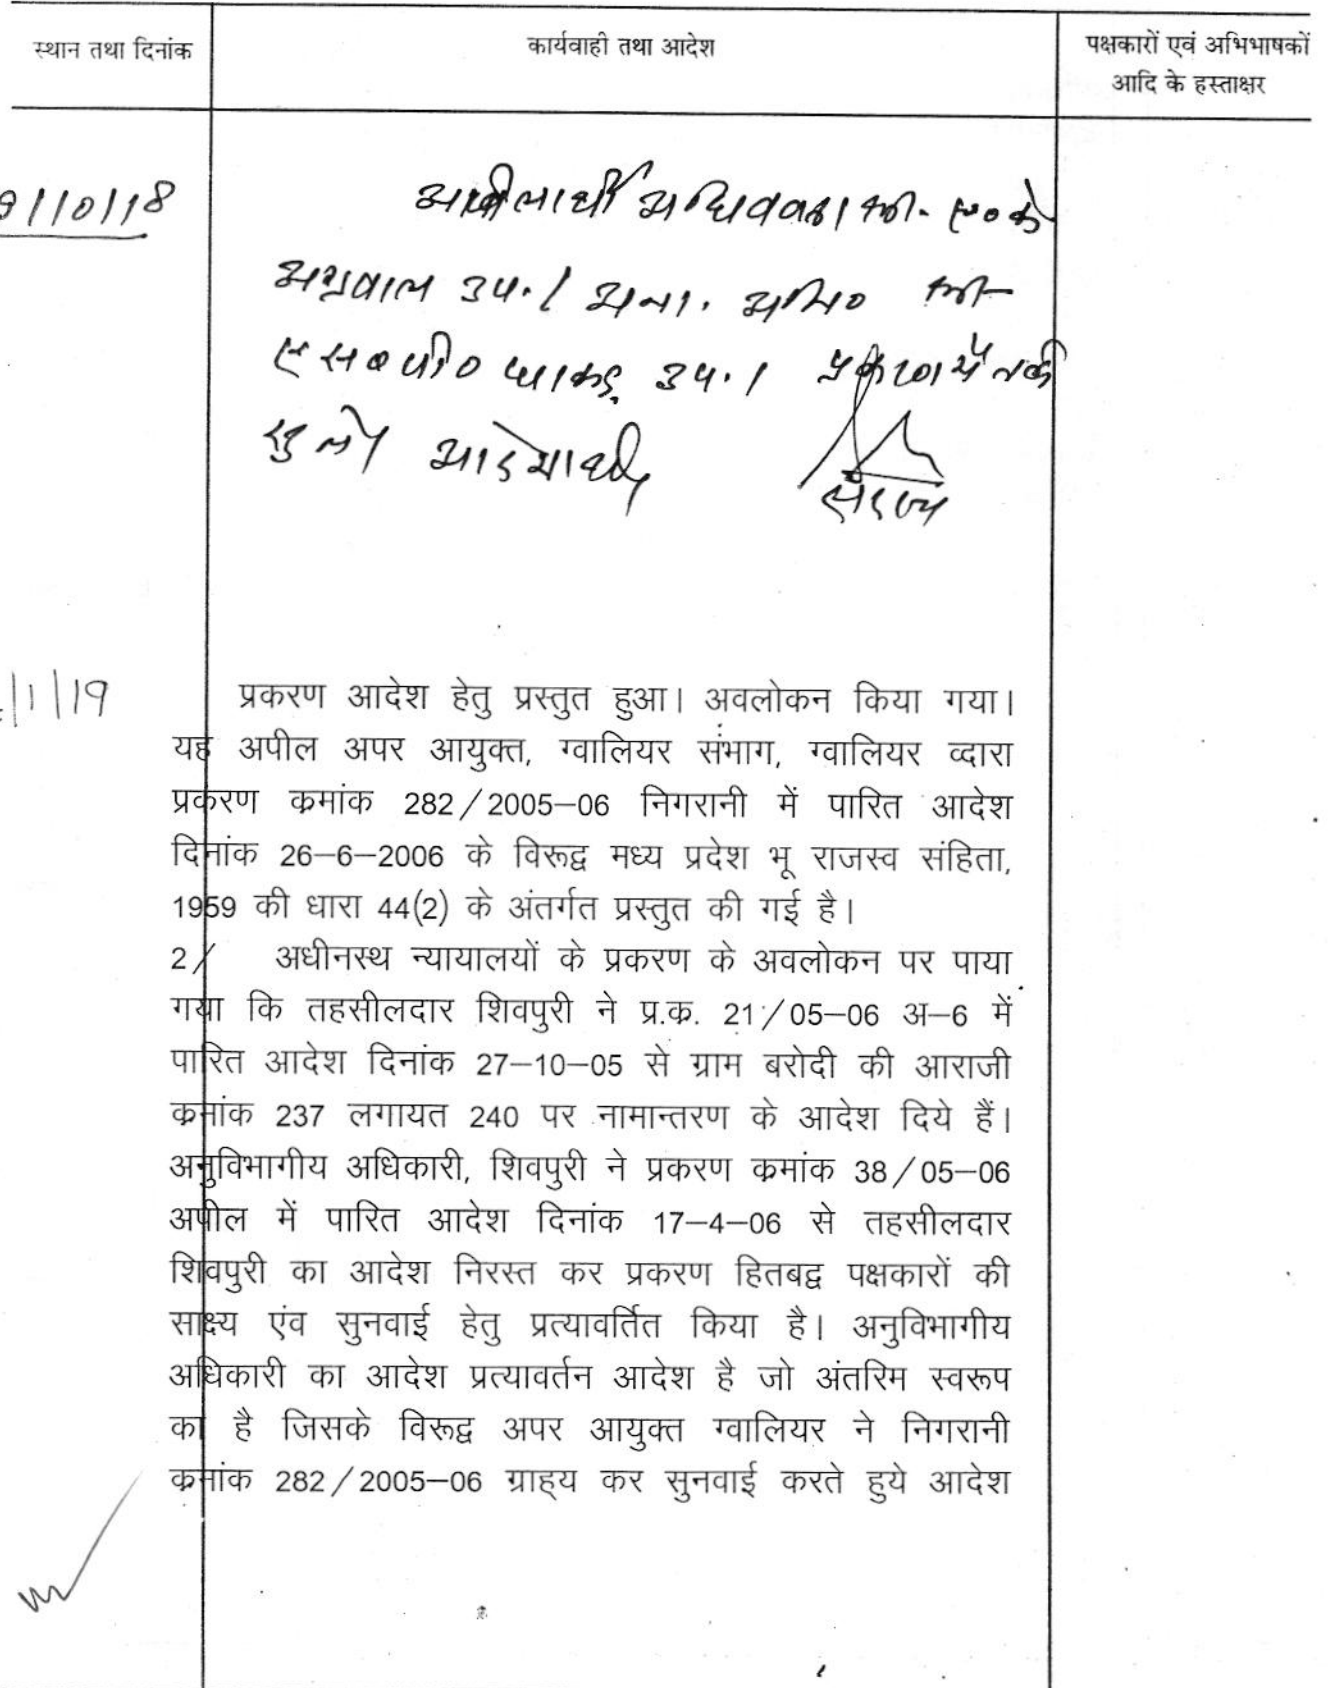 स्थान तथा दिनांक
कार्यवाही तथा आदेश
पक्षकारों एवं अभिभाषकों
आदि के हस्ताक्षर
9/10/18
अपीलार्थी अधिवक्ता श्री एo के
अग्रवाल उप.। अना. अभिo श्री
एसo पीo धाकड़ उप.। प्रकरण में तर्क
सुने। आदेशार्थ
सदस्य
/1/19
प्रकरण आदेश हेतु प्रस्तुत हुआ। अवलोकन किया गया।
यह अपील अपर आयुक्त, ग्वालियर संभाग, ग्वालियर व्दारा
प्रकरण क्रमांक 282/2005–06 निगरानी में पारित आदेश
दिनांक 26–6–2006 के विरूद्व मध्य प्रदेश भू राजस्व संहिता,
1959 की धारा 44(2) के अंतर्गत प्रस्तुत की गई है।
2/ अधीनस्थ न्यायालयों के प्रकरण के अवलोकन पर पाया
गया कि तहसीलदार शिवपुरी ने प्र.क्र. 21/05–06 अ–6 में
पारित आदेश दिनांक 27–10–05 से ग्राम बरोदी की आराजी
क्रमांक 237 लगायत 240 पर नामान्तरण के आदेश दिये हैं।
अनुविभागीय अधिकारी, शिवपुरी ने प्रकरण क्रमांक 38/05–06
अपील में पारित आदेश दिनांक 17–4–06 से तहसीलदार
शिवपुरी का आदेश निरस्त कर प्रकरण हितबद्व पक्षकारों की
साक्ष्य एंव सुनवाई हेतु प्रत्यावर्तित किया है। अनुविभागीय
अधिकारी का आदेश प्रत्यावर्तन आदेश है जो अंतरिम स्वरूप
का है जिसके विरूद्व अपर आयुक्त ग्वालियर ने निगरानी
क्रमांक 282/2005–06 ग्राह्य कर सुनवाई करते हुये आदेश